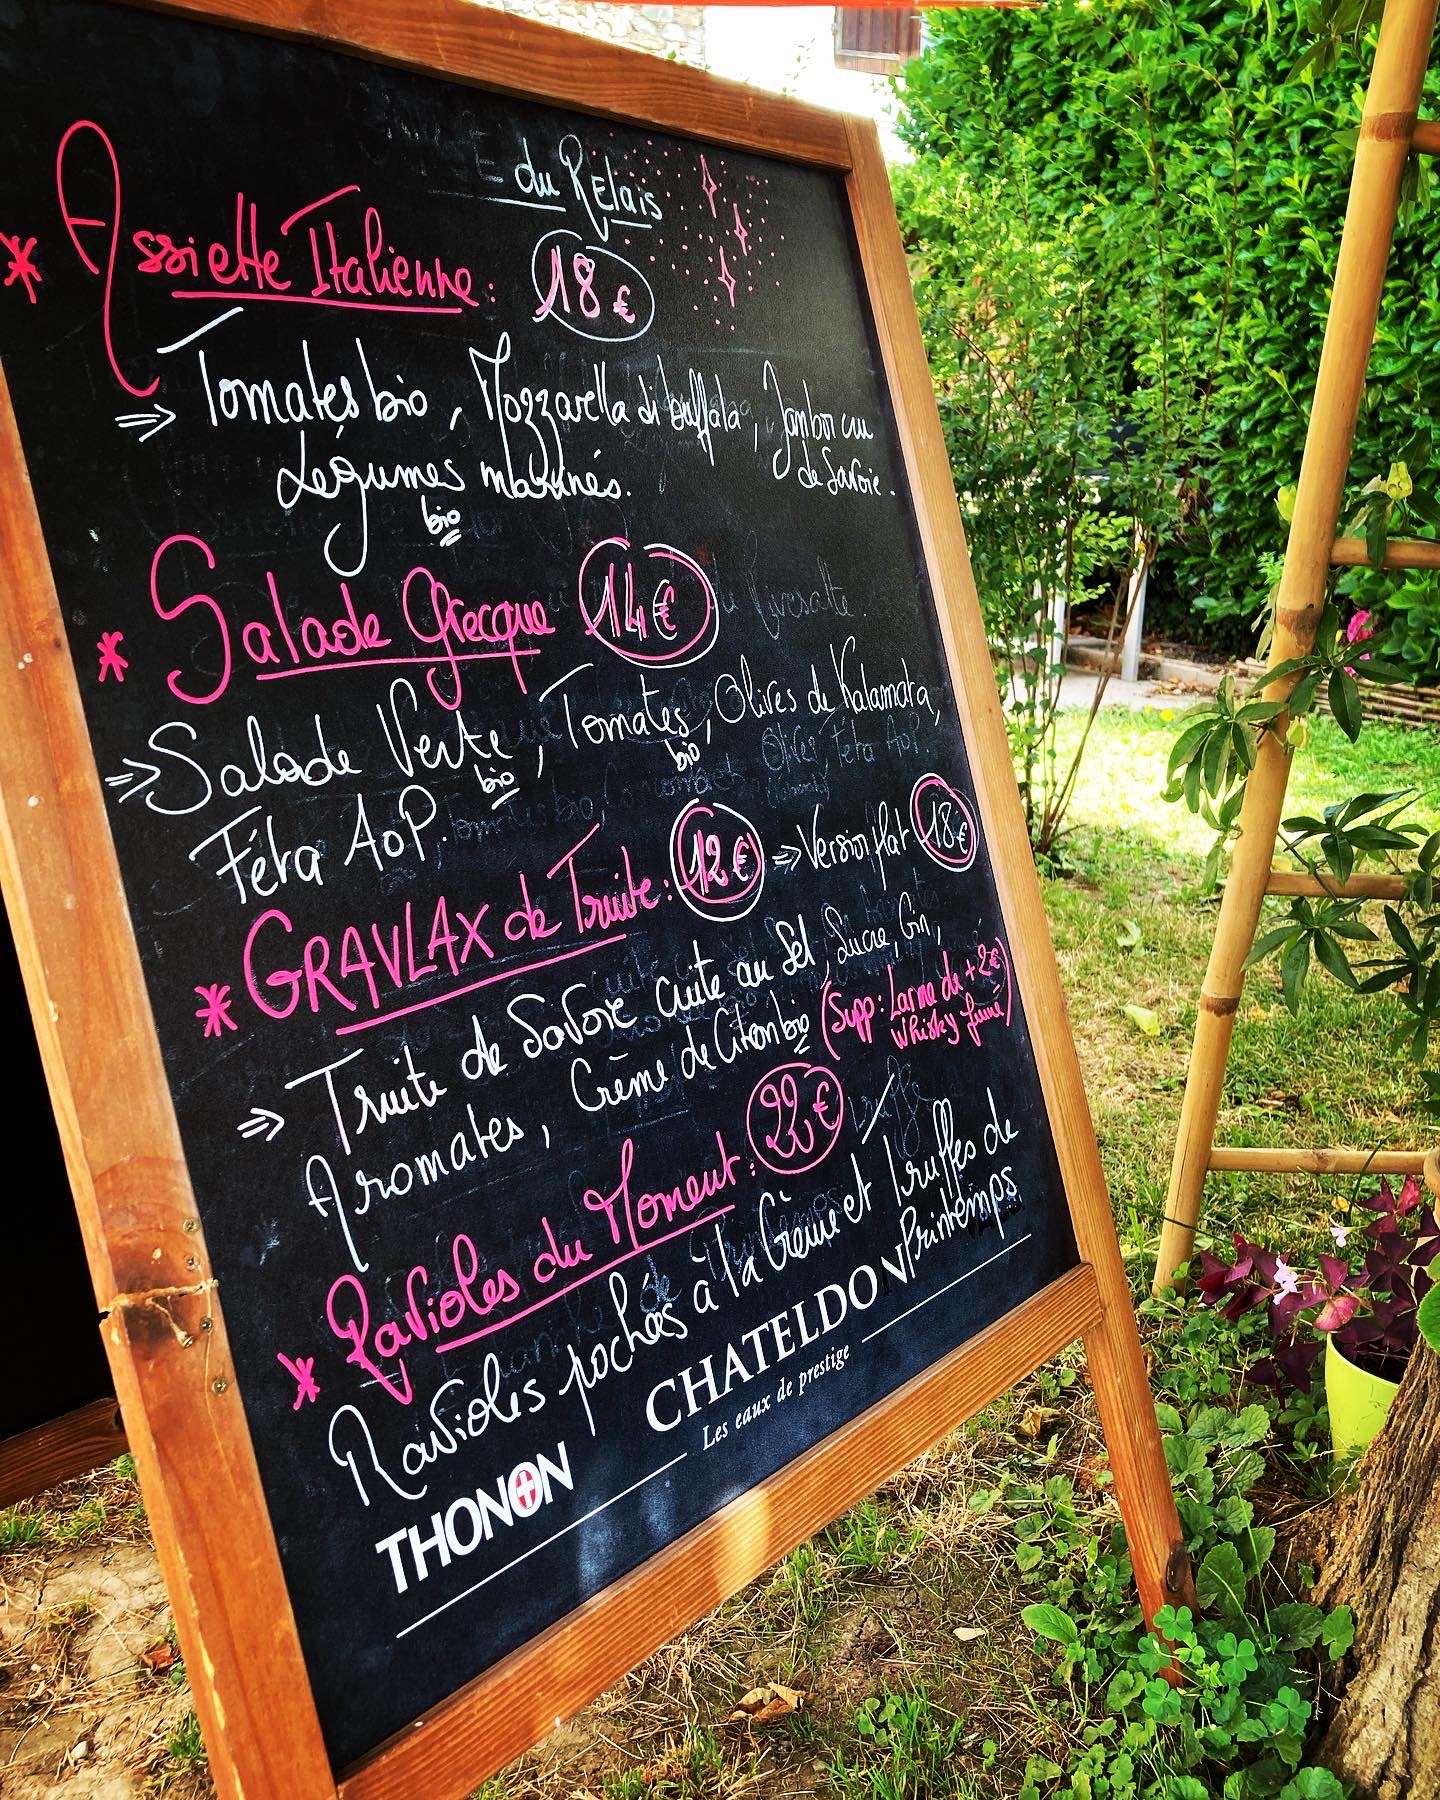 du Relais
* Assiette Italienne : 18 €
⇒ Tomates bio, Mozzarella di buffala, Jambon cru
de Savoie.
Légumes marinés.
bio
* Salade Grecque 14 €
⇒ Salade Verte, Tomates, Olives de Kalamata,
bio bio
Féta AOP.
* GRAVLAX de Truite : 12 € ⇒ Version plat 18 €
⇒ Truite de Savoie cuite au Sel, Sucre, Gin,
Aromates, Crème de Citron bio (Supp : Larme de + 2 €
Whisky fumé)
* Ravioles du Moment : 22 €
Ravioles pochées à la Crème et Truffes de
Printemps
THONON
CHATELDON
Les eaux de prestige